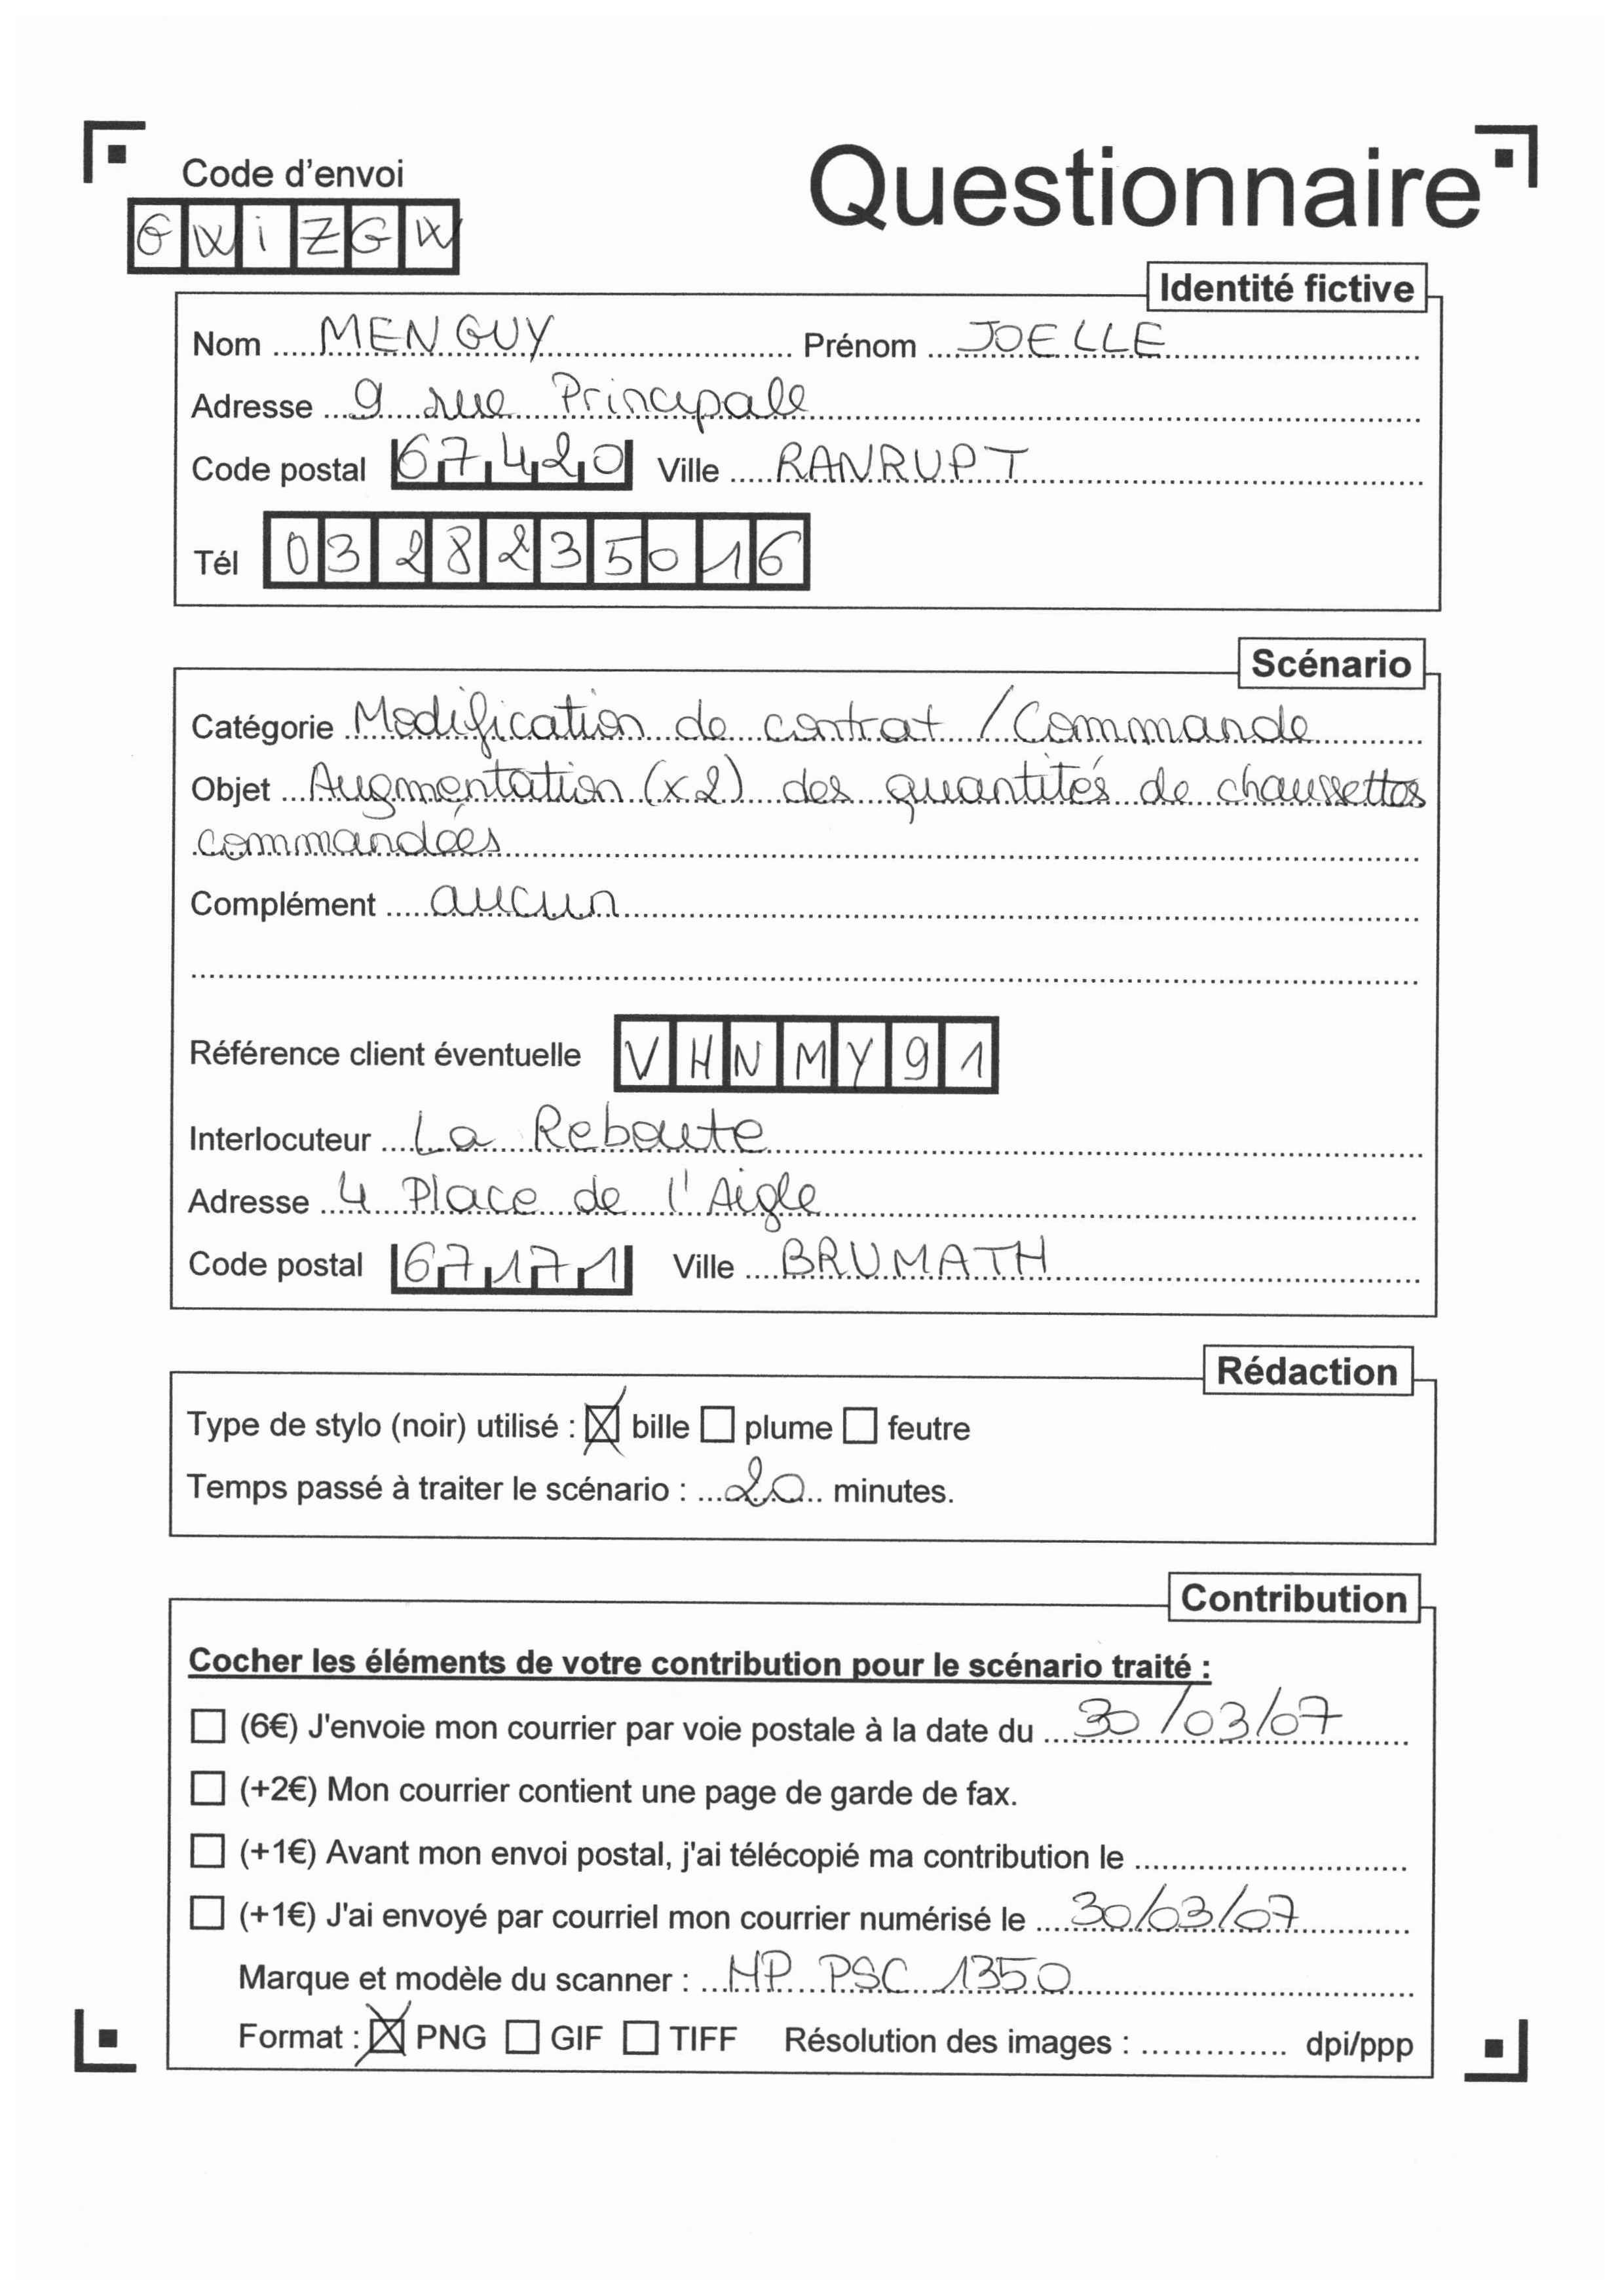 Code d'envoi
Questionnaire
GWiZGW
Identité fictive
Nom MENGUY Prénom JOELLE
Adresse 9 rue Principale
Code postal 67420 Ville RANRUPT
Tél 0328235016
Scénario
Catégorie Modification de contrat / Commande
Objet Augmentation (x2) des quantités de chaussettes
commandées
Complément aucun
Référence client éventuelle VHNMY91
Interlocuteur La Reboute
Adresse 4 Place de l'Aigle
Code postal 67171 Ville BRUMATH
Rédaction
Type de stylo (noir) utilisé : ☒ bille ☐ plume ☐ feutre
Temps passé à traiter le scénario : 20 minutes.
Contribution
Cocher les éléments de votre contribution pour le scénario traité :
☐ (6€) J'envoie mon courrier par voie postale à la date du 30/03/07
☐ (+2€) Mon courrier contient une page de garde de fax.
☐ (+1€) Avant mon envoi postal, j'ai télécopié ma contribution le
☐ (+1€) J'ai envoyé par courriel mon courrier numérisé le 30/03/07
Marque et modèle du scanner : HP PSC 1350
Format : ☒ PNG ☐ GIF ☐ TIFF Résolution des images : dpi/ppp